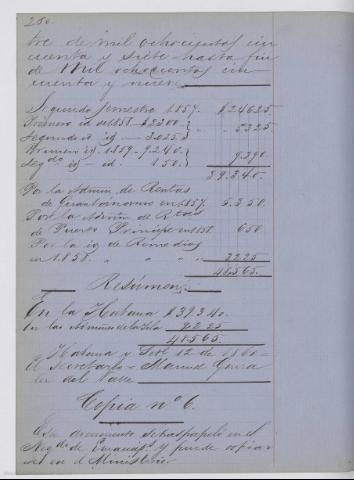 260.
tre de mil ochocientos cin
cuenta y siete hasta fin
de Mil ochocientos cin
cuenta y nueve
Segundo semestre 1857. $24625
Primero id. en 1858. $2300
Segundo id. id. 3025 5325
Primero id. 1859. 9240.
Segdo id. id. 150. 9390.
39.340.
Por la Admon de Rentas
de Guantánamo en 1857. 5.350.
Por la Admon de Rtas
de Puerto Principe en 1858. 650.
Por la id. de Remedios
en 1858. " " " 3225.
48.565.
Resúmen
En la Habana $39.340.
En las Admines de la Isla 9.225
48.565.
Habana y 12 de 1860
El Secretario Manuel Gonza
lez del Valle
Copia nº 6.
Este documento en el
Negdo de y puede copiar
se en el Ministerio